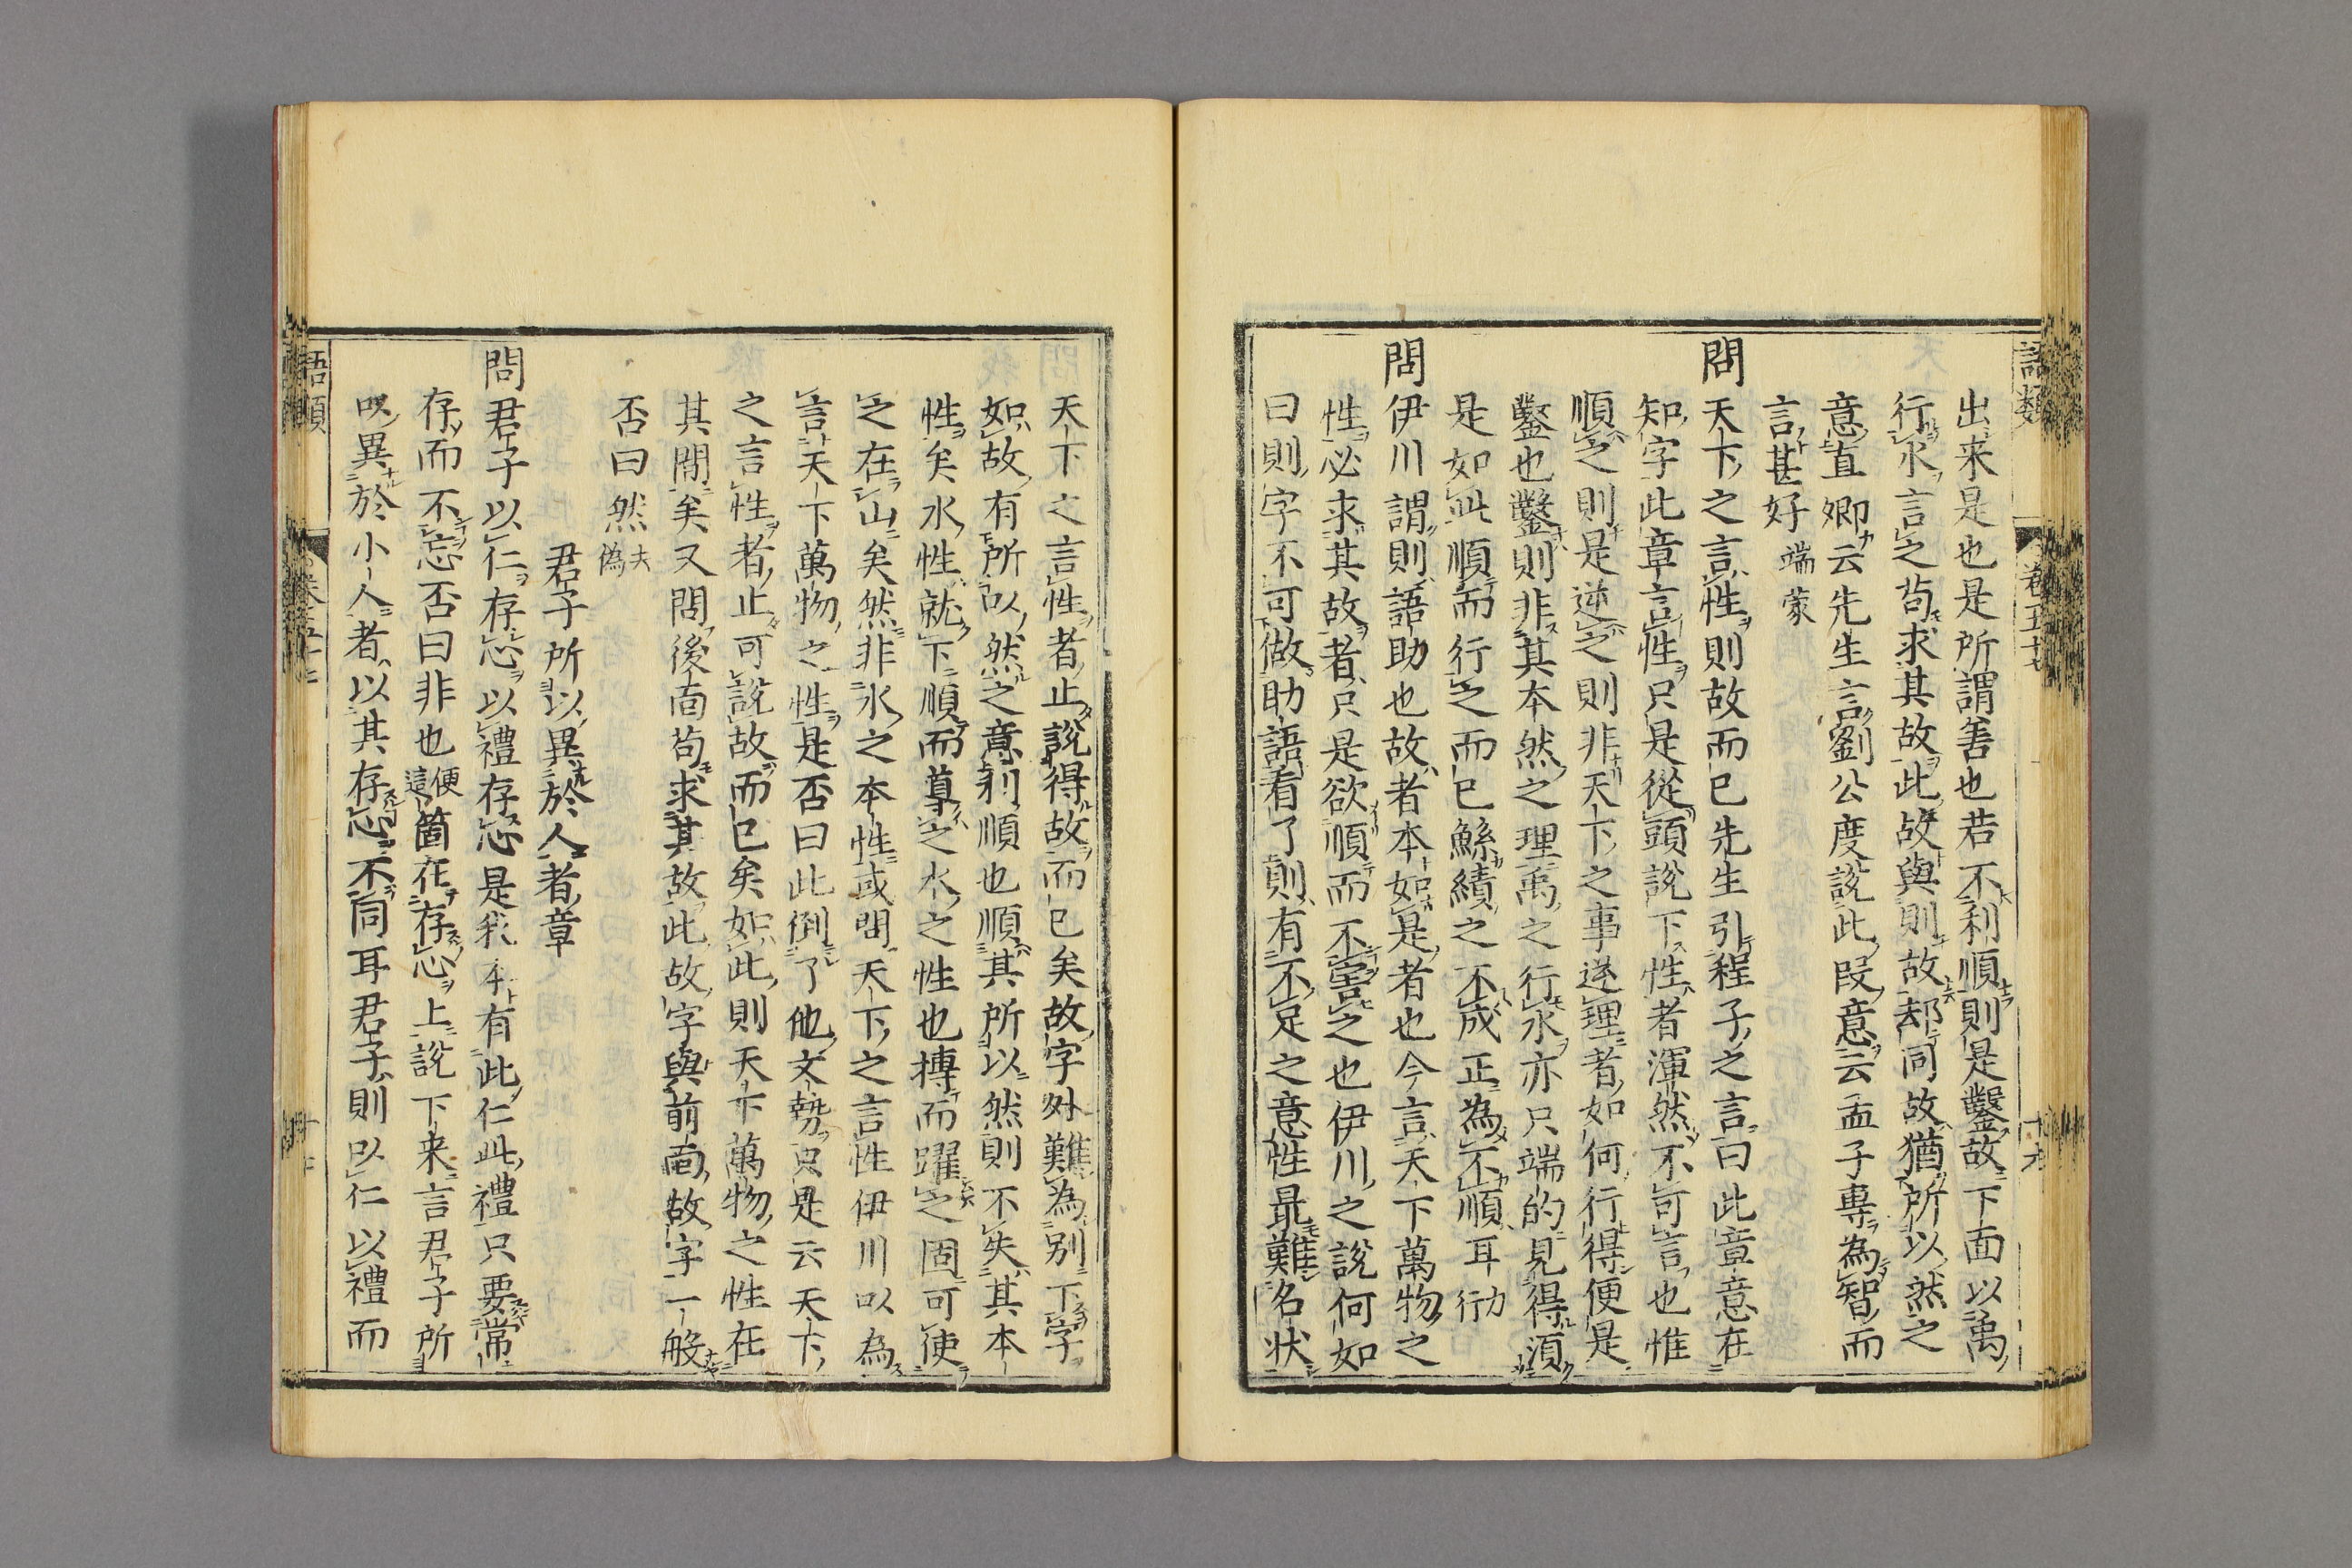 語類 卷五十七
出来是也是所謂善也若不利順則是鑿故下面以禹
行水言之苟求其故此故與則故却同故猶所以然之
意直卿云先生言劉公度說此段意云孟子專為智而
言甚好端蒙
問天下之言性則故而已先生引程子之言曰此章意在
知字此章言性只是從頭說下性者渾然不可言也惟
順之則是逆之則非天下之事逆理者如何行得便是
鑿也鑿則非其本然之理禹之行水亦只端的見得須
是如此順而行之而已鯀績之不成正為不順耳力行
問伊川謂則語助也故者本如是者也今言天下萬物之
性必求其故者只是欲順而不害之也伊川之說何如
曰則字不可做助語看了則有不足之意性最難名狀
天下之言性者止說得故而已矣故字外難為別下字
如故有所以然之意利順也順其所以然則不失其本
性矣水性就下順而導之水之性也搏而躍之固可使
之在山矣然非水之本性或問天下之言性伊川以為
言天下萬物之性是否曰此倒了他文勢只是云天下
之言性者止可說故而已矣如此則天下萬物之性在
其間矣又問後面苟求其故此故字與前面故字一般
否曰然夫偽
君子所以異於人者章
問君子以仁存心以禮存心是我本有此仁此禮只要常
存而不忘否曰非也便這箇在存心上說下来言君子所
以異於小人者以其存心不同耳君子則以仁以禮而
語類